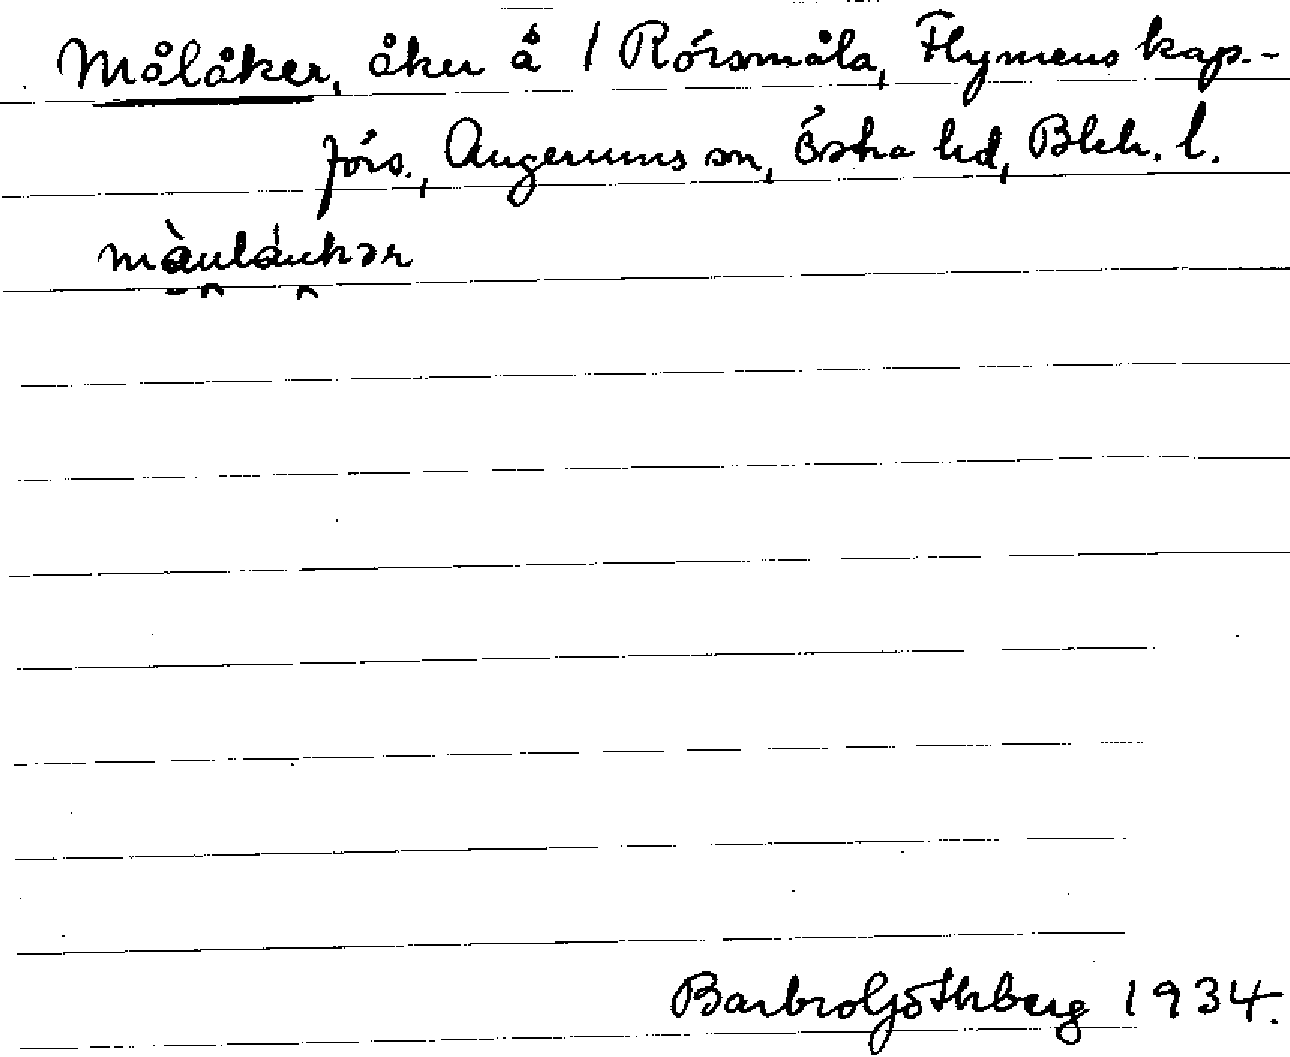 Målåker, åker å 1 Rörsmåla, Flymens kap.-
förs., Augerums sn, Östra hd, Blek. l.
màuláukər
Barbro Göthberg 1934.